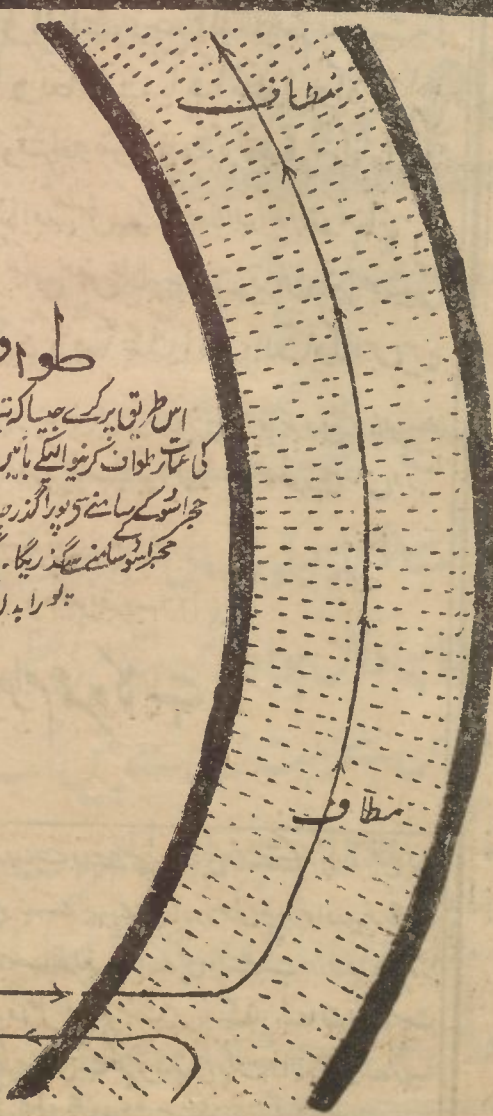 مطاف
طواف
اس طریق پر کرے جیسا کہ
کی عمارت طواف کرنیوالیکے بائیں
حجر اسود کے سامنے سے پورا گذر
حجر اسود کے سامنے سے گذریگا۔
پورا بدن
مطاف